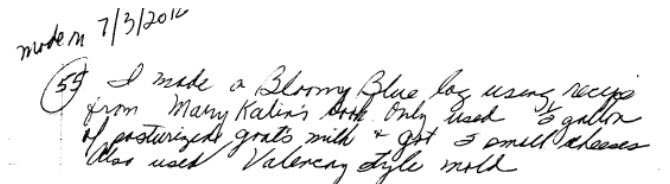 made on 7/3/2012
(55) I made a Bloomy Blue log using recipe
from Mary Karlin's book. Only used ½ gallon
of pasturized goat's milk + got 3 small cheeses
Also used Valencay style mold